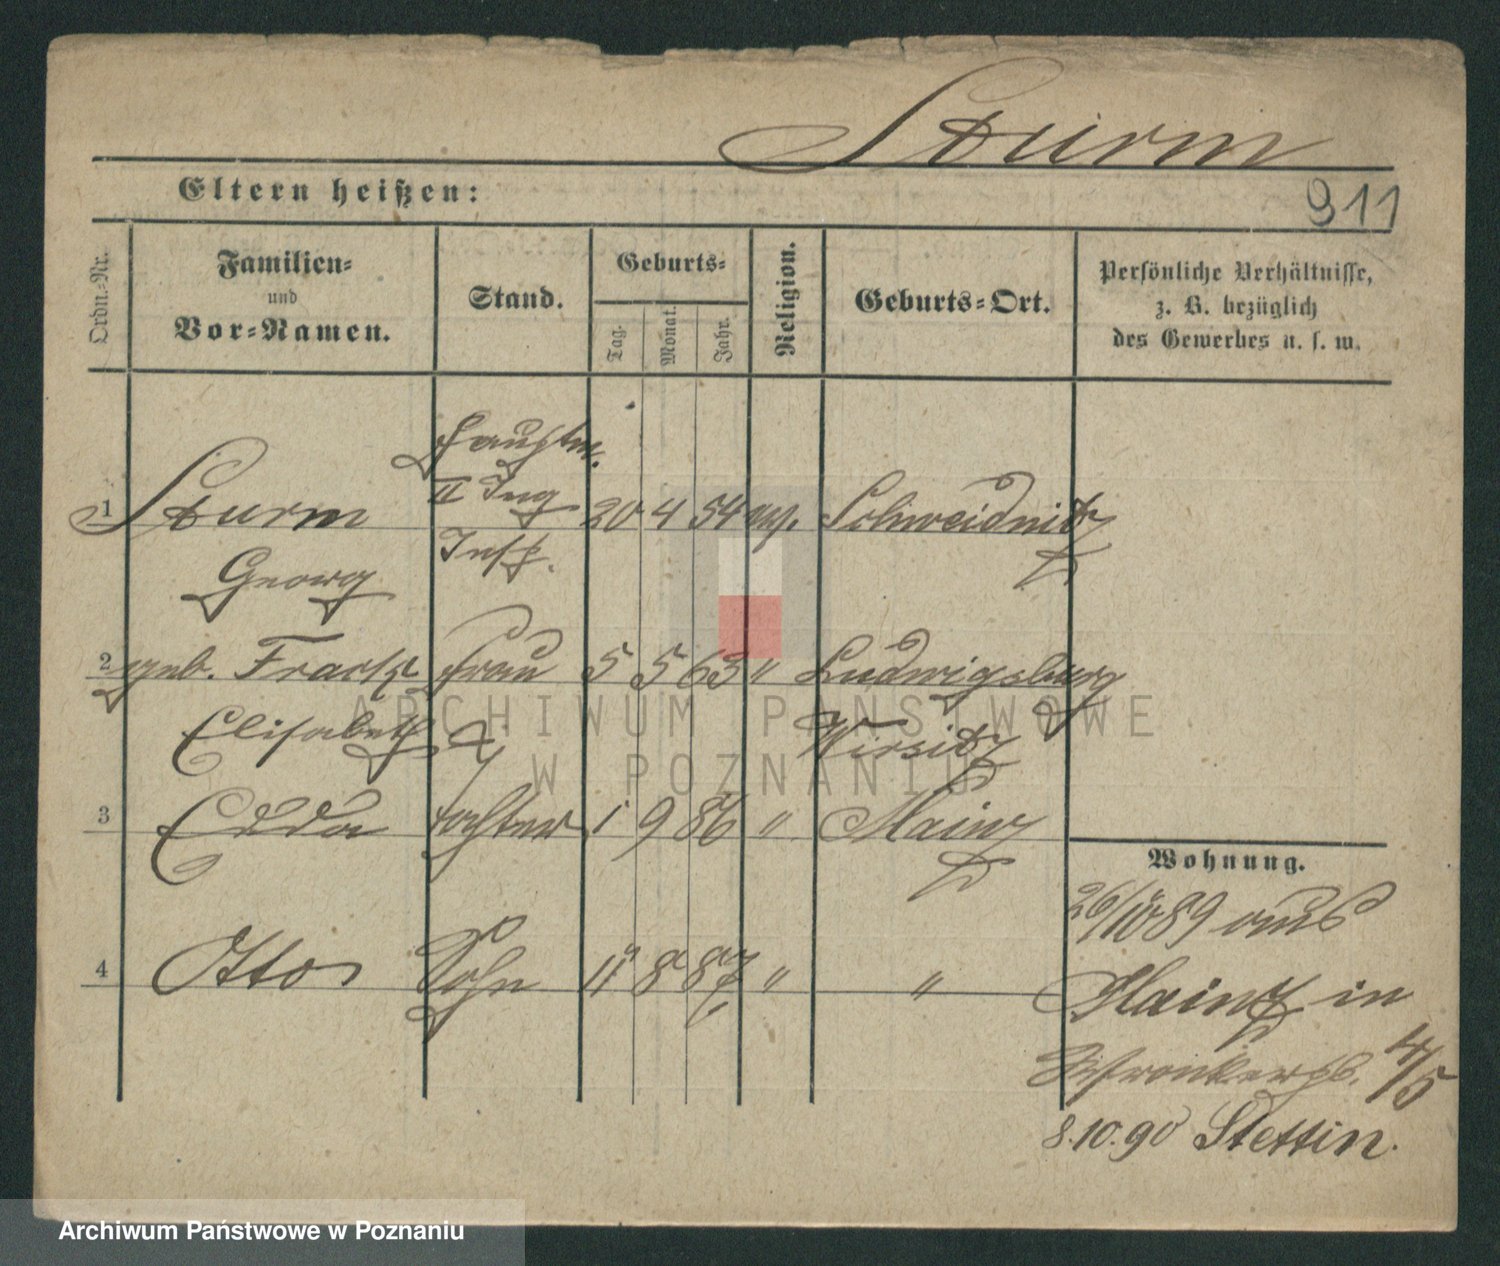 Sturm
Eltern heißen:
911
Ordn.-Nr.
Familien-
und
Vor-Namen.
Stand.
Geburts-
Tag.
Monat.
Jahr.
Religion.
Geburts-Ort.
Persönliche Verhältnisse,
z. B. bezüglich
des Gewerbes u. s. w.
Hauptm.
1 Sturm II Ing 20 4 54 ev. Schweidnitz
Georg Insp.
2 geb. Frau 5 5 63 " Ludwigsburg
Elisabeth Wirsitz
3 Edda Tochter 1 9 86 " Mainz
Wohnung.
26/10 89 aus
4 Otto Sohn 11 8 87 " "
Mainz in
Wronkerpl. 4/5
8.10.90 Stettin.
ARCHIWUM PAŃSTWOWE
W POZNANIU
Archiwum Państwowe w Poznaniu